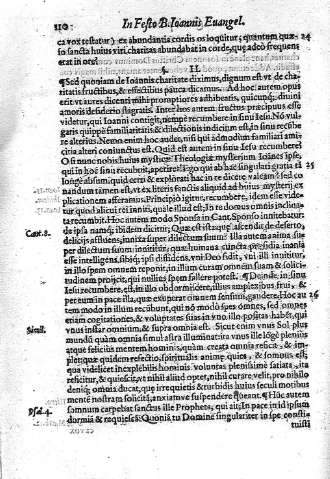 110. In Festo B. Ioannis Euangel.
ca vox testatur) ex abundantia cordis os loquitur, quantum 24
so sancta huius viri charitas abundabat in corde, quę adeò frequens
erat in ore!
§. II.
Sed quoniam de Ioannis charitate diximus, dignum est vt de charitatis fructibus, & effectibus pauca dicamus. Ad hoc autem opus
erit vt aures dicenti mihi promptiores adhibeatis, quicunq; diuini
amoris desiderio flagratis. Inter hos autem fructus pręcipuus esse
videtur, qui Ioanni contigit, nempè recumbere in sinu Iesu. Nō vulgaris
quippè familiaritatis, & dilectionis indicium est, in sinu recumbere
alterius. Nemo enim hoc audet, nisi qui admodum familiari amicitia
alteri coniunctus est. Quid est autem in sinu Iesu recumbere?
O si nunc nobis huius mysticę Theologię mysterium Ioānes ipse,
qui in hoc sinu recubuit, aperiret! ego qui ab hac singulari gratia 25
longè absum, quid dem
 & explorati hac in re dicere valeam? sed conandum
tamen est, vt ex literis sanctis aliquid ad huius mysterij explicationem
afferamus. Principiò igitur, recumbere, idem esse videtur
quod alicui rei inniti, qualē illud est; In te domus omnis inclinata
recumbit. Hoc autem modo Sponsa in Cant. Sponso innitebatur:
Cant. 8. de ipsa namq; ibidem dicitur; Quæ est ista quę ascendit de deserto,
delicijs affluens, innixa super dilectum suum? Illa autem anima super
dilectum suum innititur, quæ humana cuncta pręsidia inania
esse intelligens, sibiq; ipsi diffidens, voi Deo fidit, vni illi innititur,
in illo spem omnem reponit, in illum curam omnem suam & solicitudinem
projicit, qui nullies spem fallere potest. ¶ Deinde in sinu
Iesu recumbere, est, in illo obdormiscere, illius amplexibus frui, &
per eum in pace illa, quæ exuperat omnem sensum, gaudere. Hoc au 26
tem modo in illum recūbunt, qui nō modò spes omnes, sed omnes
etiam cogitationes, & voluntates suas in vno illo positas habēt, qui
vnus instar omnium, & supra omnia est. Sicut enim vnus Sol plus
Simil. mundū quàm omnia simul astra illuminat: ita vnus ille longè pleniùs
atque feliciùs mentem hominis, quàm creata omnia reficit, & implet:
qua quidem refectio, spiritualis animę quies, & somnus est;
qua videlicet inexplebilis hominis voluntas plenissimè satiata, ita
reficitur, & quiescit, vt nihil aliud optet, nihil curare velit, pro nihilo
deniq; omnia ducat, quę irrequietis & turbidis huius seculi motibus
mentē nostram solicitā, anxiam vè suspendere queant. ¶ Hoc autem
Psal. 4. somnum carpebat sanctus ille Propheta, qui ait; In pace in idipsum
dormiā & requiescā: Quoniā tu Domine singulariter in spe constituisti